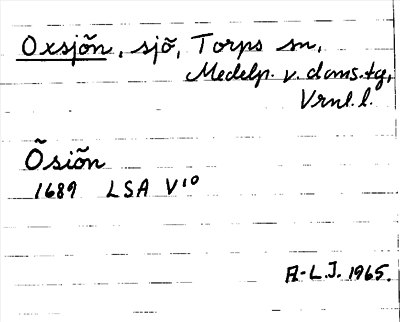 Oxsjõn, sjõ, Torps sn,
Medelp. v. dms. tg,
Vrnl. l.
Õsiõn
1689 LSA V¹⁰
A-L.J. 1965.